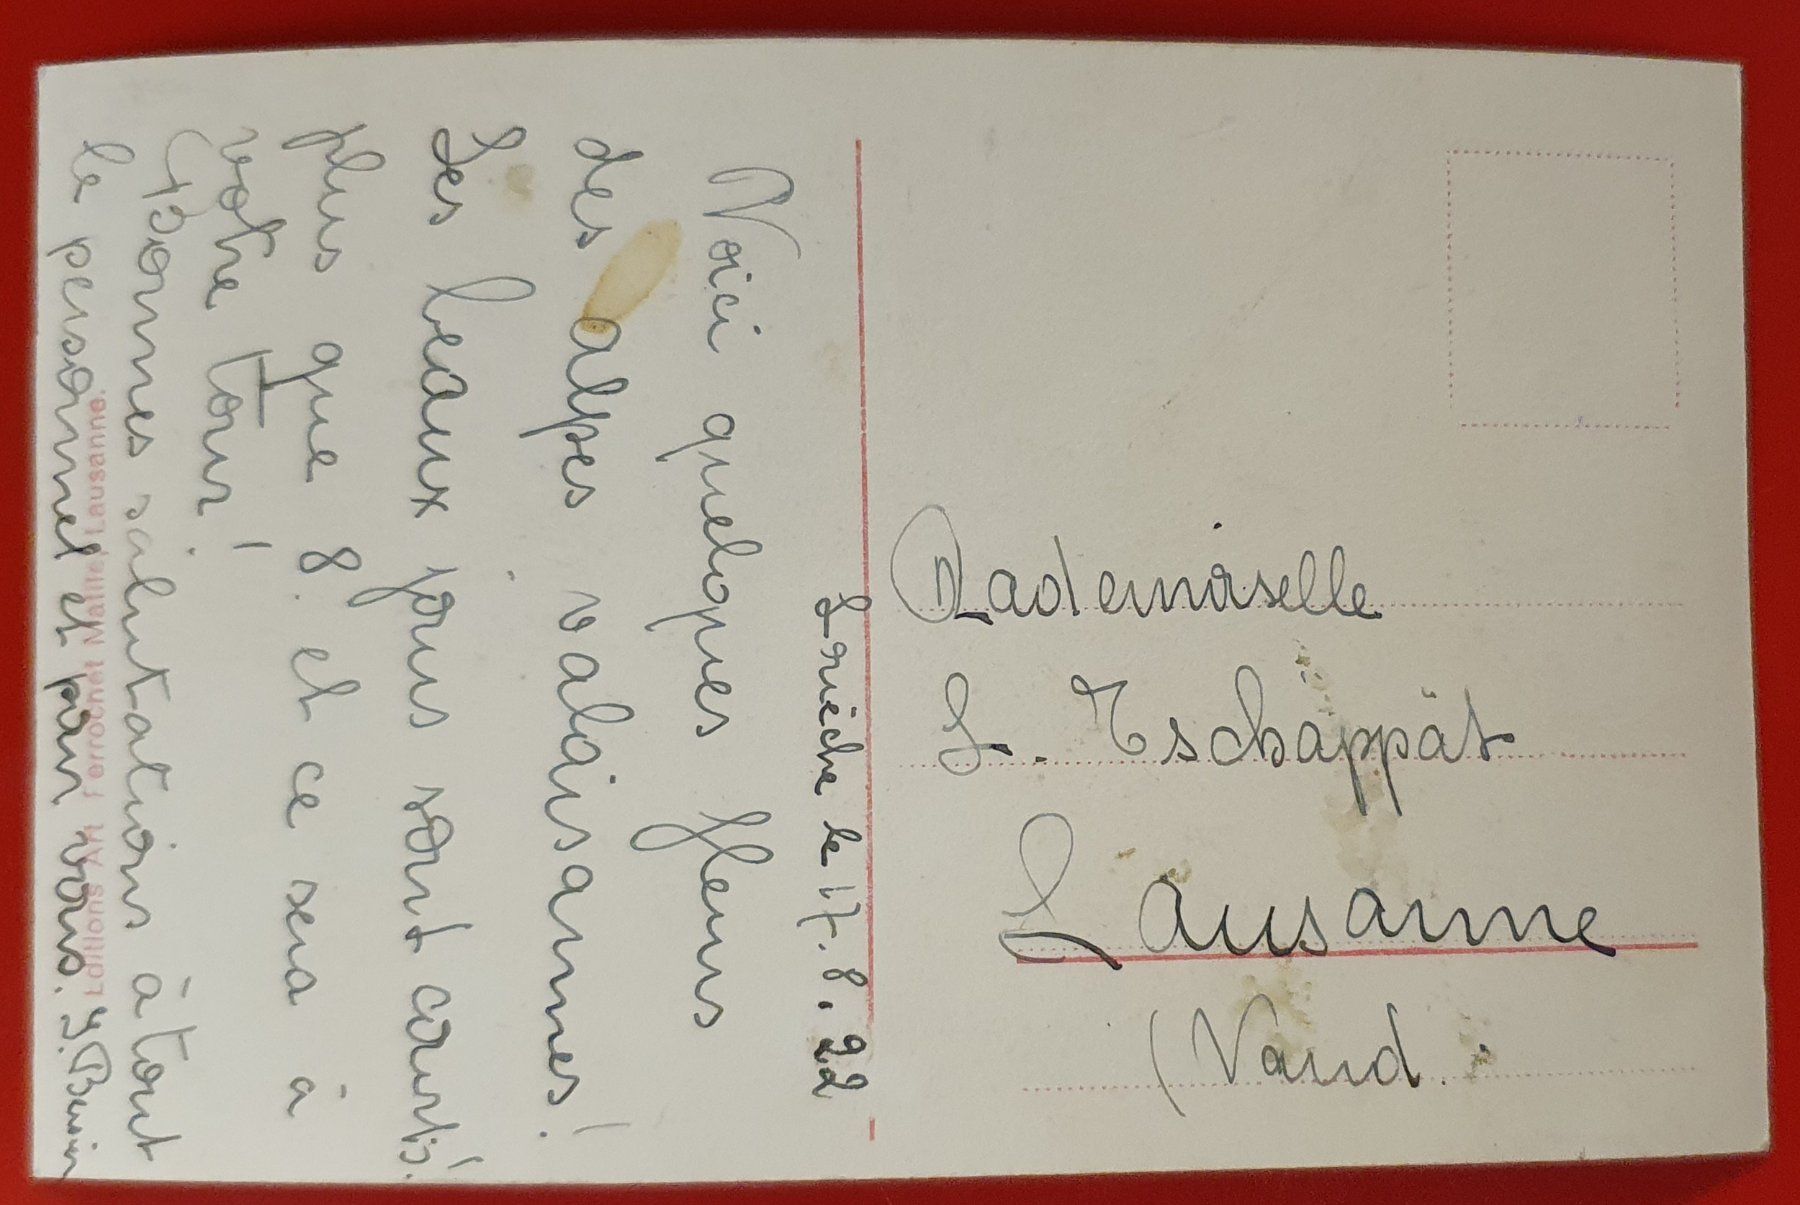 Lrièche le 17. 8. 22
Voici quelques fleurs
des alpes valaisannes!
Les beaux jours sont courts!
plus que 8. et ce sera à
votre tour!
Bonnes salutations à tout
le personnel et pour vous. Y.
Mademoiselle
L. Tschäppät
Lausanne
(Vaud.
Editions Art Perrochet Matile, Lausanne.